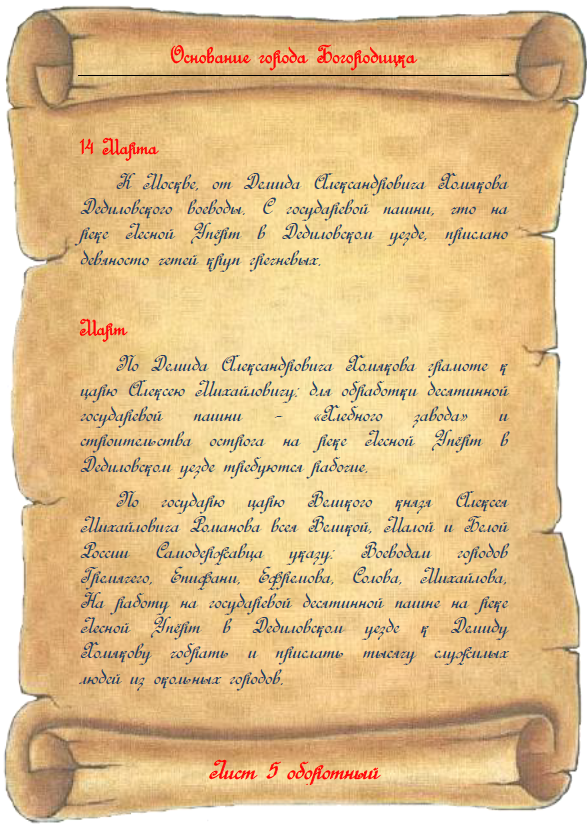 Основание города Богородицка
14 Марта
К Москве, от Демида Александровича Хомякова
Дедиловского воеводы. С государевой пашни, что на
реке Лесной Упёрт в Дедиловском уезде, прислано
девяносто четей круп гречневых.
Март
По Демида Александровича Хомякова грамоте к
царю Алексею Михайловичу: для обработки десятинной
государевой пашни – «Хлебного завода» и
строительства острога на реке Лесной Упёрт в
Дедиловском уезде требуются рабочие.
По государю царю Великого князя Алексея
Михайловича Романова всея Великой, Малой и Белой
России Самодержавца указу: Воеводам городов
Гремячего, Епифани, Ефремова, Солова, Михайлова,
На работу на государевой десятинной пашне на реке
Лесной Упёрт в Дедиловском уезде к Демиду
Хомякову собрать и прислать тысячу служилых
людей из окольных городов.
Лист 5 оборотный